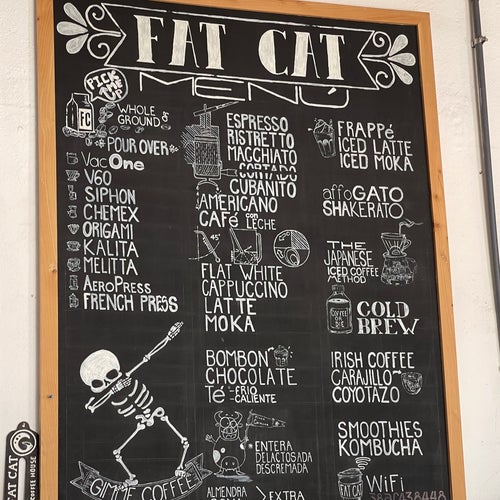 FAT CAT
MENÚ
PICK ME UP
FC
WHOLE
GROUND
POUR OVER
VacONE
V60
SIPHON
CHEMEX
ORIGAMI
KALITA
MELITTA
AEROPRESS
FRENCH PRESS
GIMME COFFEE
ESPRESSO
RISTRETTO
MACCHIATO
CORTADO
CUBANITO
AMERICANO
CAFé con LECHE
45°
FLAT WHITE
CAPPUCCINO
LATTE
MOKA
BOMBON
CHOCOLATE
Té FRIO
CALIENTE
ENTERA
DELACTOSADA
DESCREMADA
ALMENDRA
EXTRA
FRAPPé
ICED LATTE
ICED MOKA
affoGATO
SHAKERATO
THE
JAPANESE
ICED COFFEE
METHOD
COFFEE
OR
DIE
COLD
BREW
IRISH COFFEE
CARAJILLO
COYOTAZO
SMOOTHIES
KOMBUCHA
FAT CAT
WiFi
FAT CAT
COFFEE HOUSE